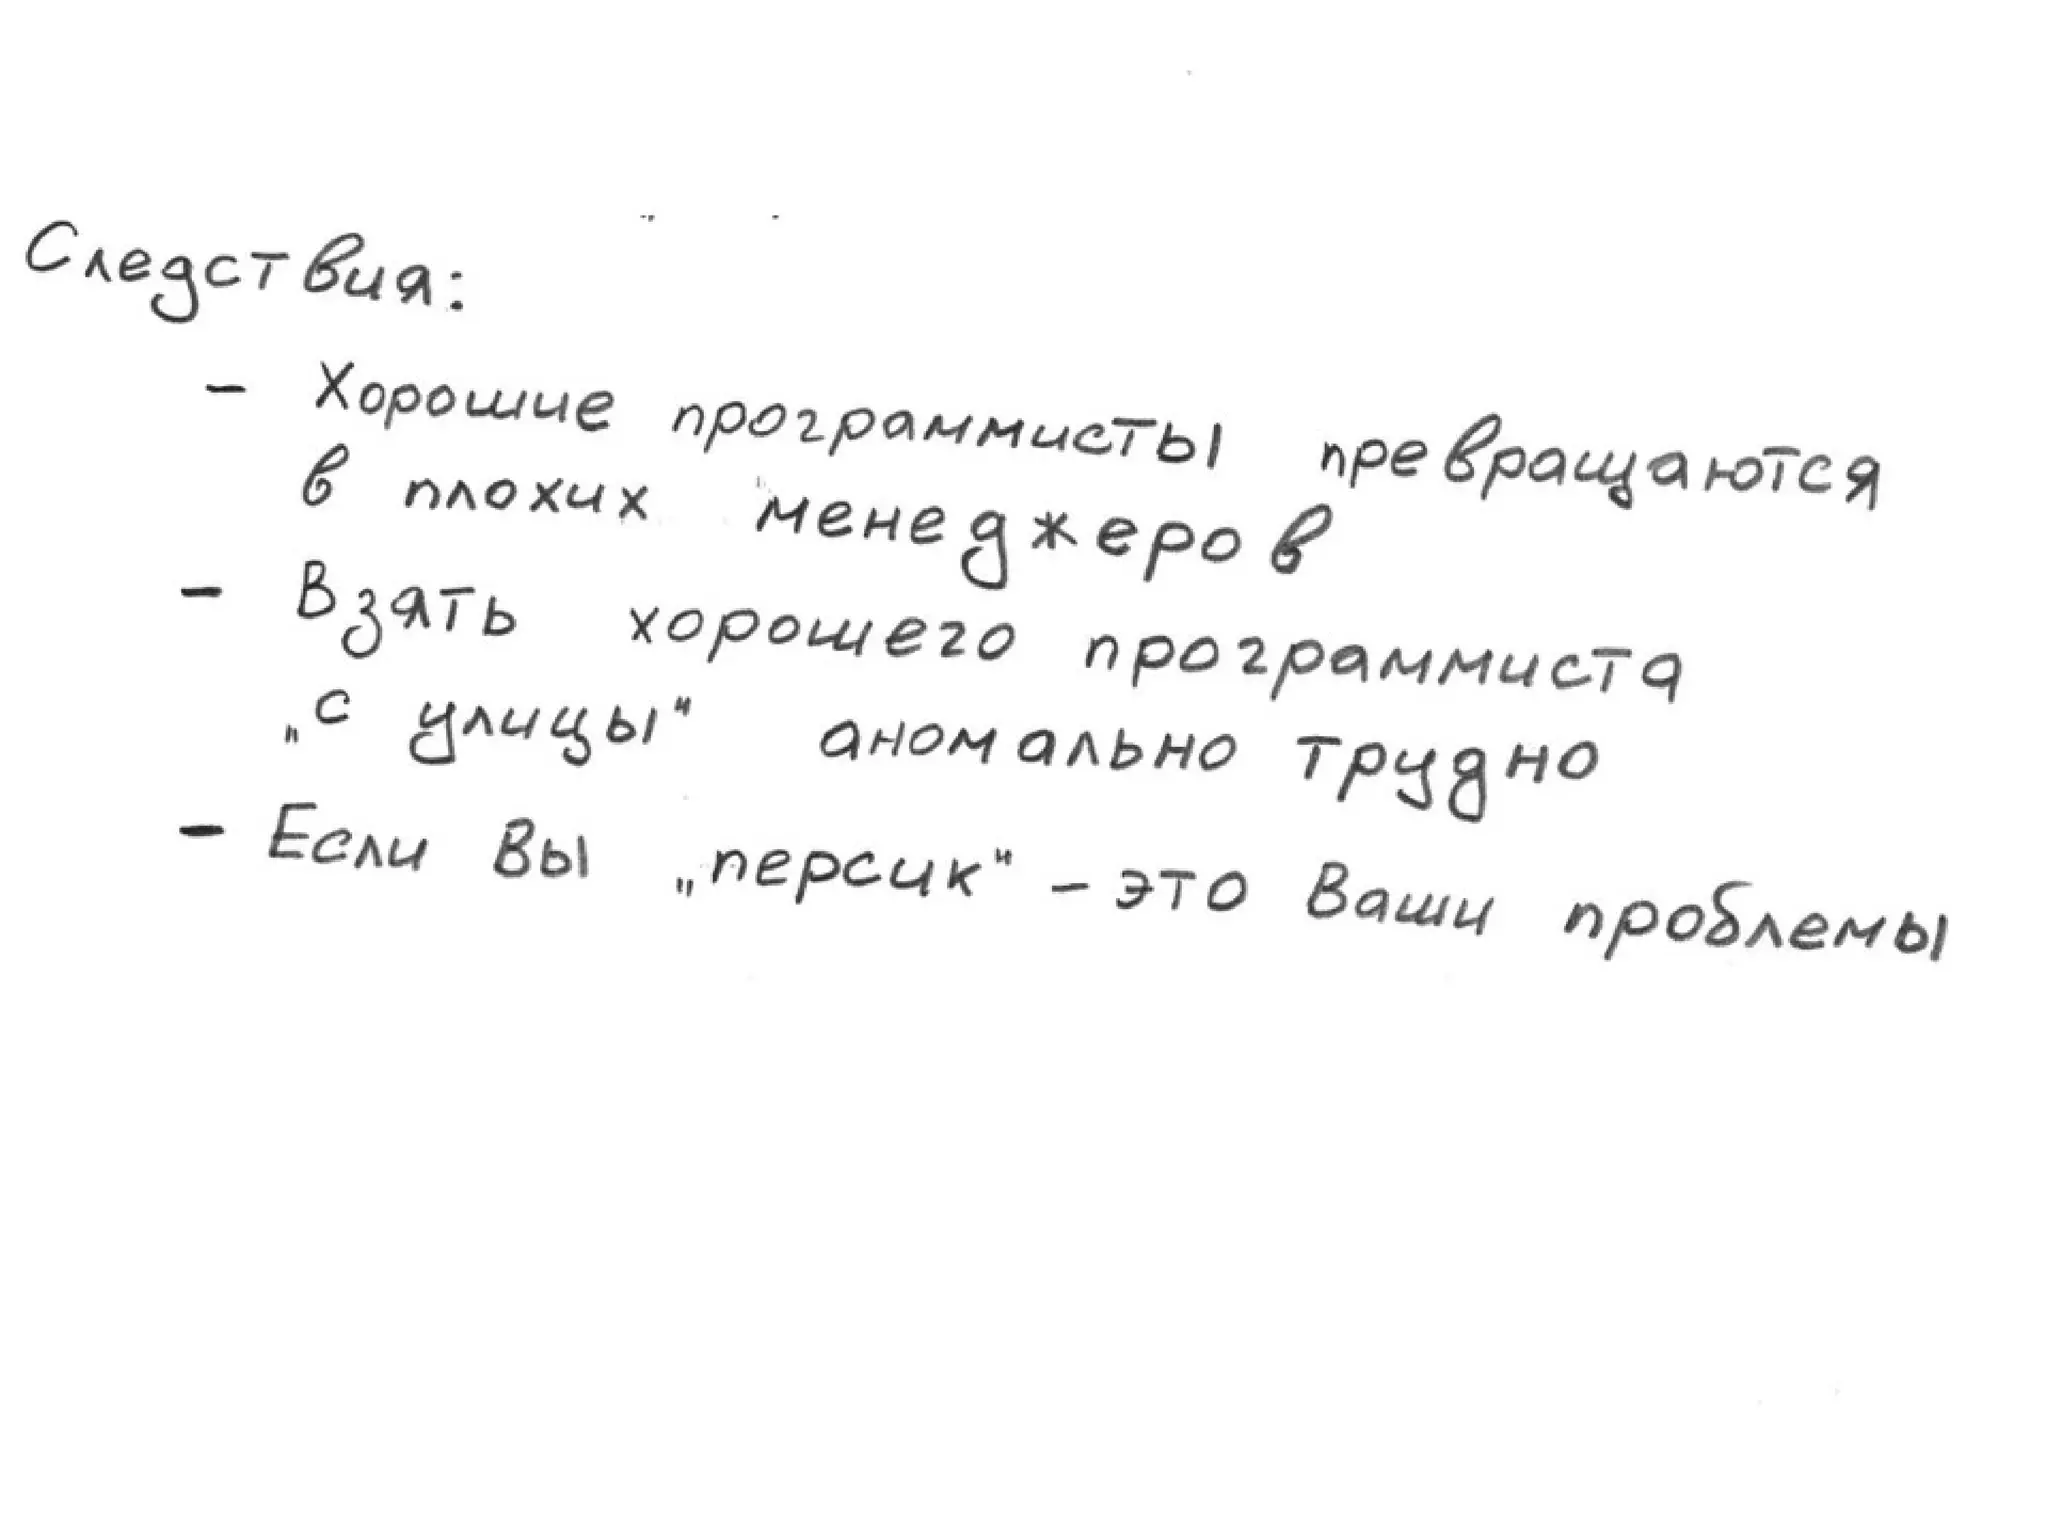 Следствия:
- Хорошие программисты превращаются
в плохих менеджеров
- Взять хорошего программиста
„с улицы“ аномально трудно
- Если Вы „персик“ - это Ваши проблемы